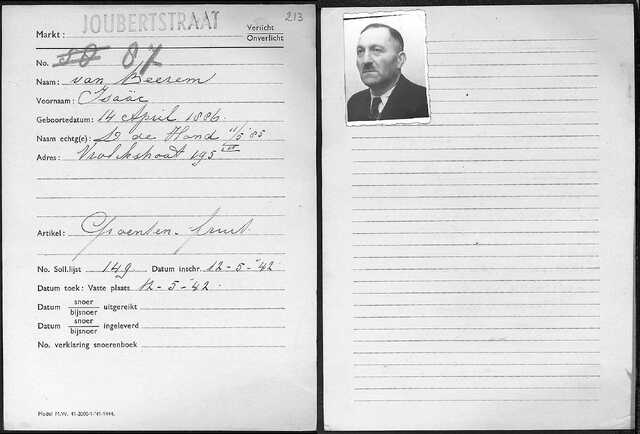 213
Markt: JOUBERTSTRAAT Verlicht
Onverlicht
No. 50 87
Naam: van Beerem
Voornaam: Isäac
Geboortedatum: 14 April 1886.
Naam echtg(e): de Hond 11/5 '85
Adres: 195 III
Artikel: Groenten-fruit
No. Soll.lijst 149 Datum inschr. 12-5-'42
Datum toek: Vaste plaats 12-5-'42.
Datum snoer / bijsnoer uitgereikt
Datum snoer / bijsnoer ingeleverd
No. verklaring snoerenboek
Model M.W. 41-2000-1-'41-1444.